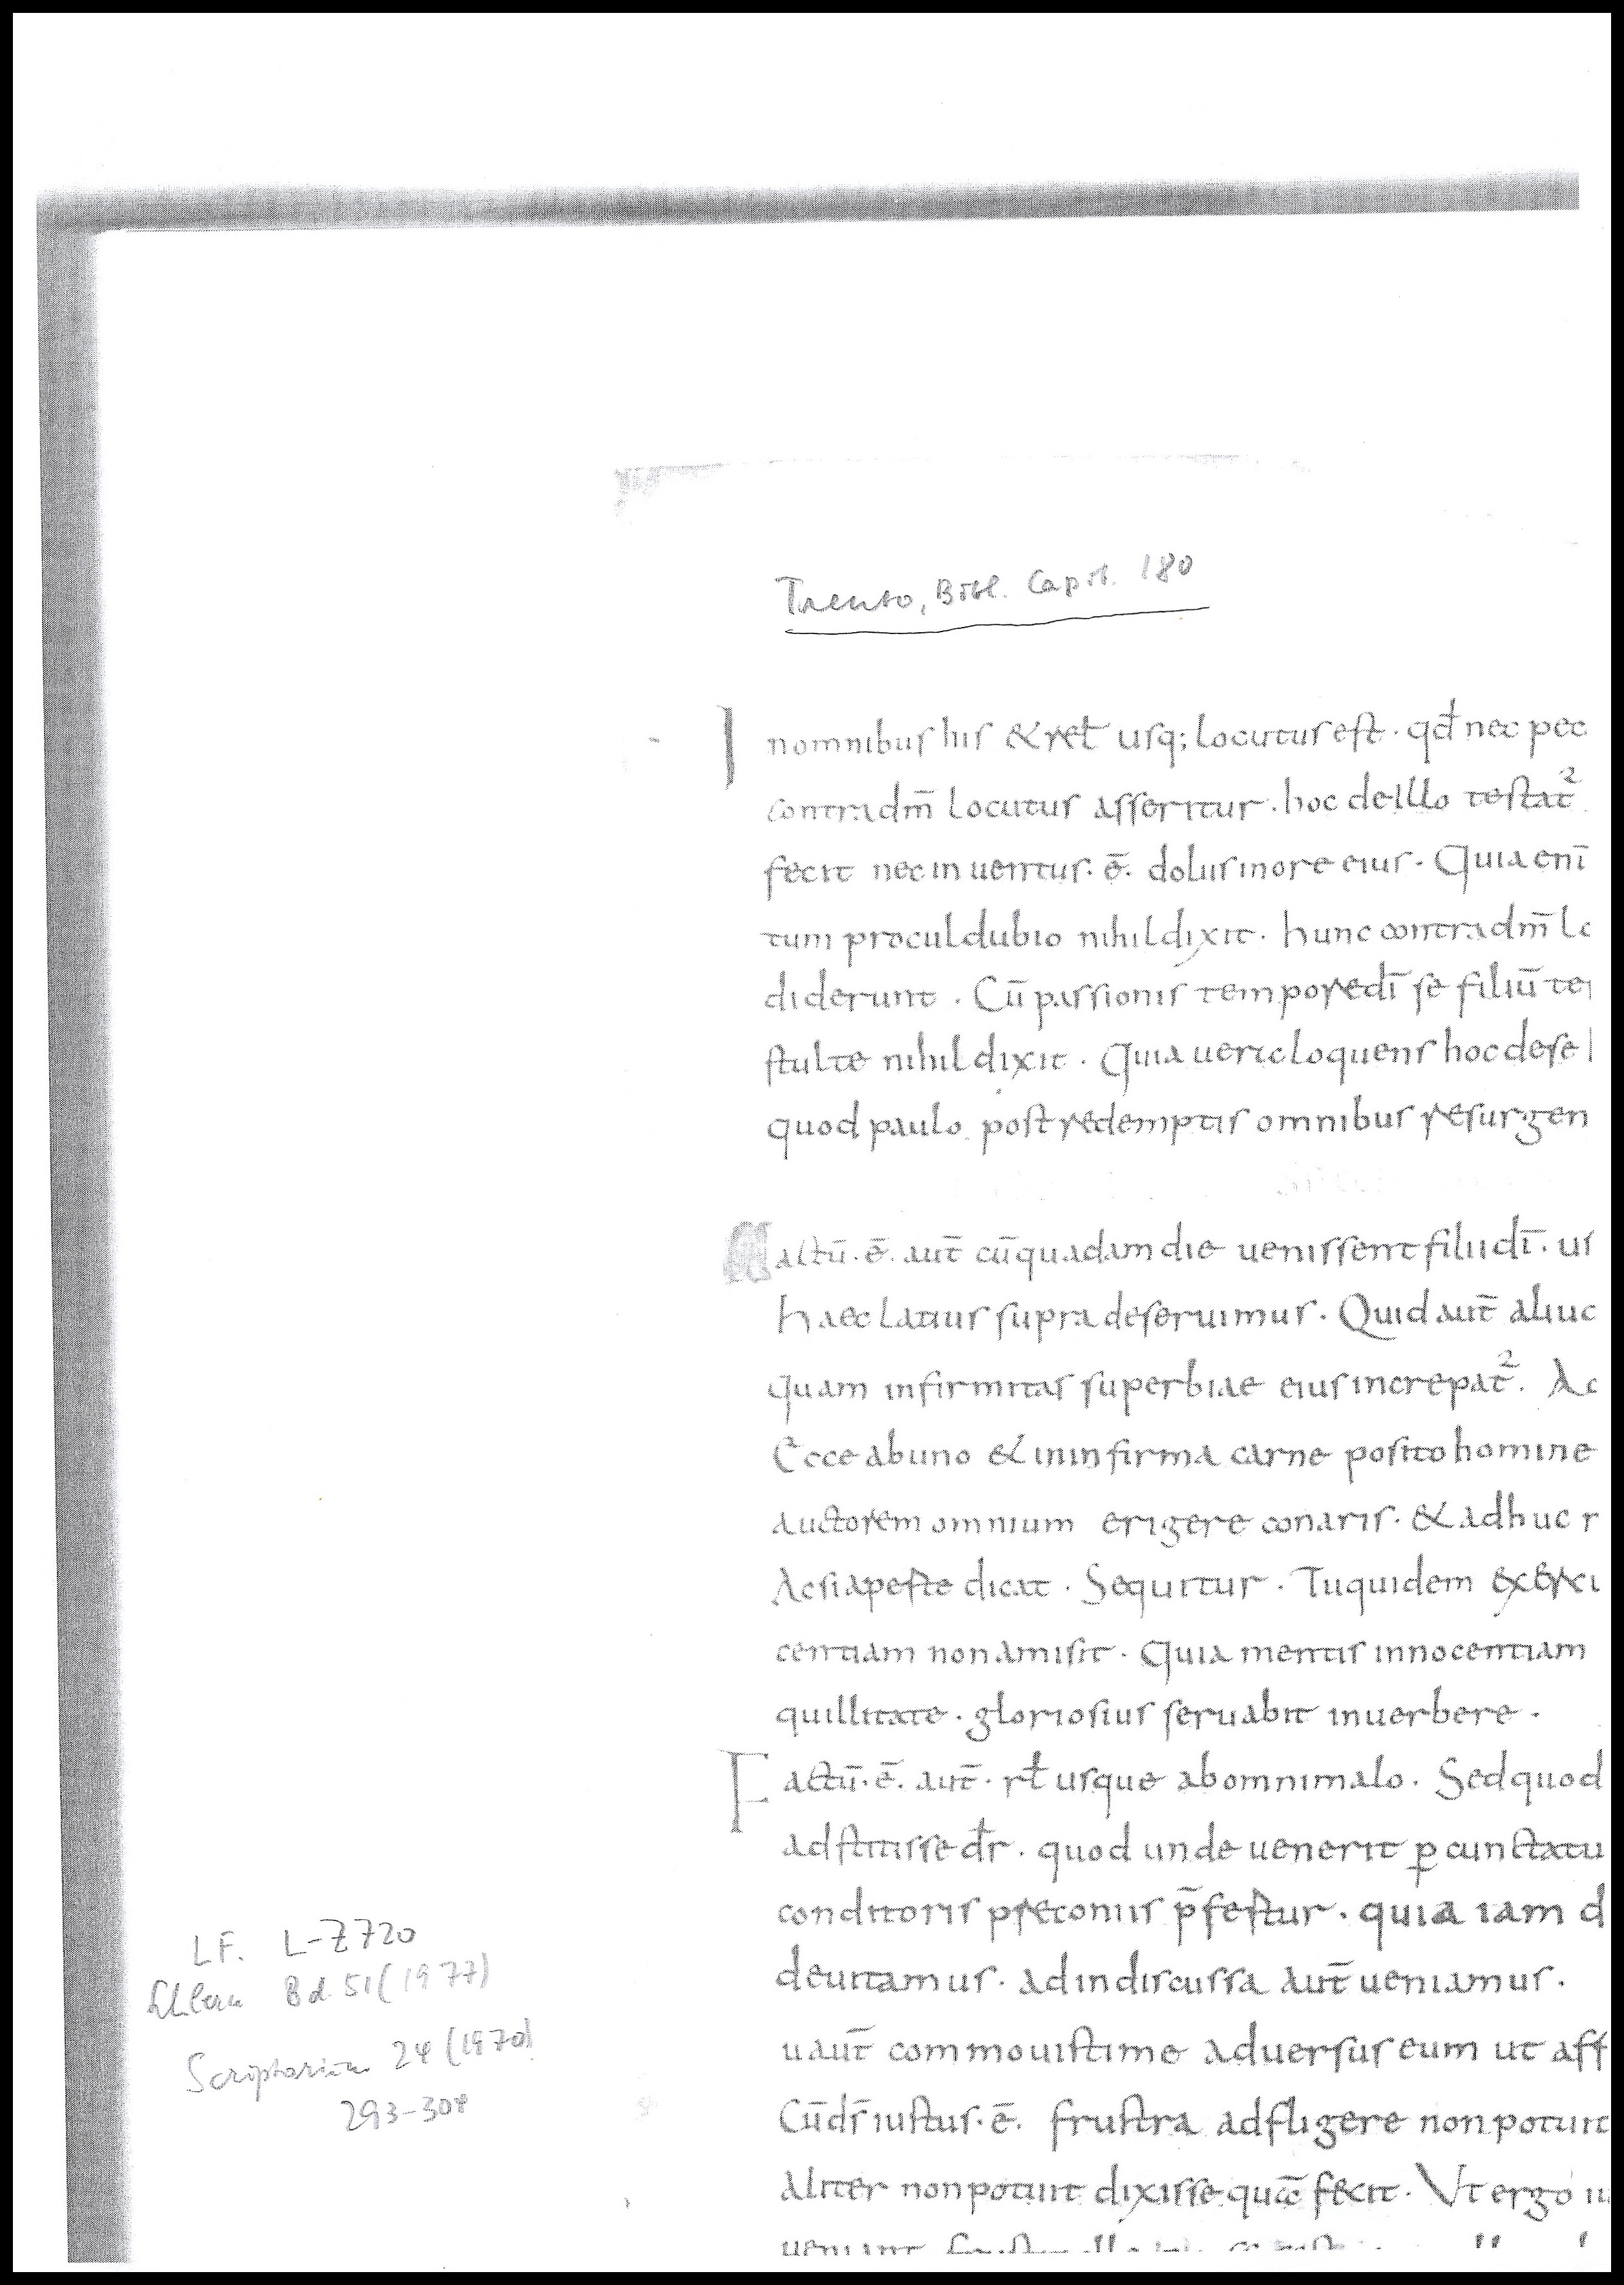 Trento, Bibl. Capit. 180
In omnibus his & rel̄ usq; locutus est · qđ nec pec
contra dm̄ locutus asseritur · hoc de illo testat̄²
fecit nec inuentus · ē · dolus in ore eius · Quia eni̅
tum procul dubio nihil dixit · hunc contra dm̄ lo
diderunt · Cū passionis tempore dī se filiū te
stulte nihil dixit · Quia ueric loquens hoc de se
quod paulo post redemptis omnibus resurgen
actū · ē · aut̄ cū quadam die uenissent filii dī · ui
haec latius supra deseruimus · Quid aut̄ aliud
quam infirmitas superbiae eius increpat̄² · Ac
Ecce ab uno & in infirma carne posito homine
auctorem omnium erigere conaris · & adhuc
Ac si apeste dicat · Sequitur · Tu quidem exerci
centiam non amisit · Quia mentis innocentiam
quillitate · gloriosius seruabit in uerbere ·
Factū · ē · aut̄ · rł usque ab omni malo · Sed quod
adstitisse dr̄ · quod unde uenerit ꝑcunctatu
conditoris preconiis p̄festur · quia iam d
deuitamus · ad indiscussa aut̄ ueniamus ·
u aut̄ commouisti me aduersus eum ut aff
Cū dr̄ iustus · ē · frustra adfligere non potuit
Aliter non potuit dixisse quā fecit · Vt ergo iu
LF. L-Z720
Bd. 51 (1977)
Scriptorium 24 (1970)
293-308